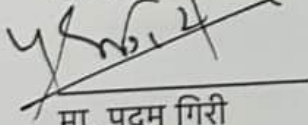 मा पदम गिरी